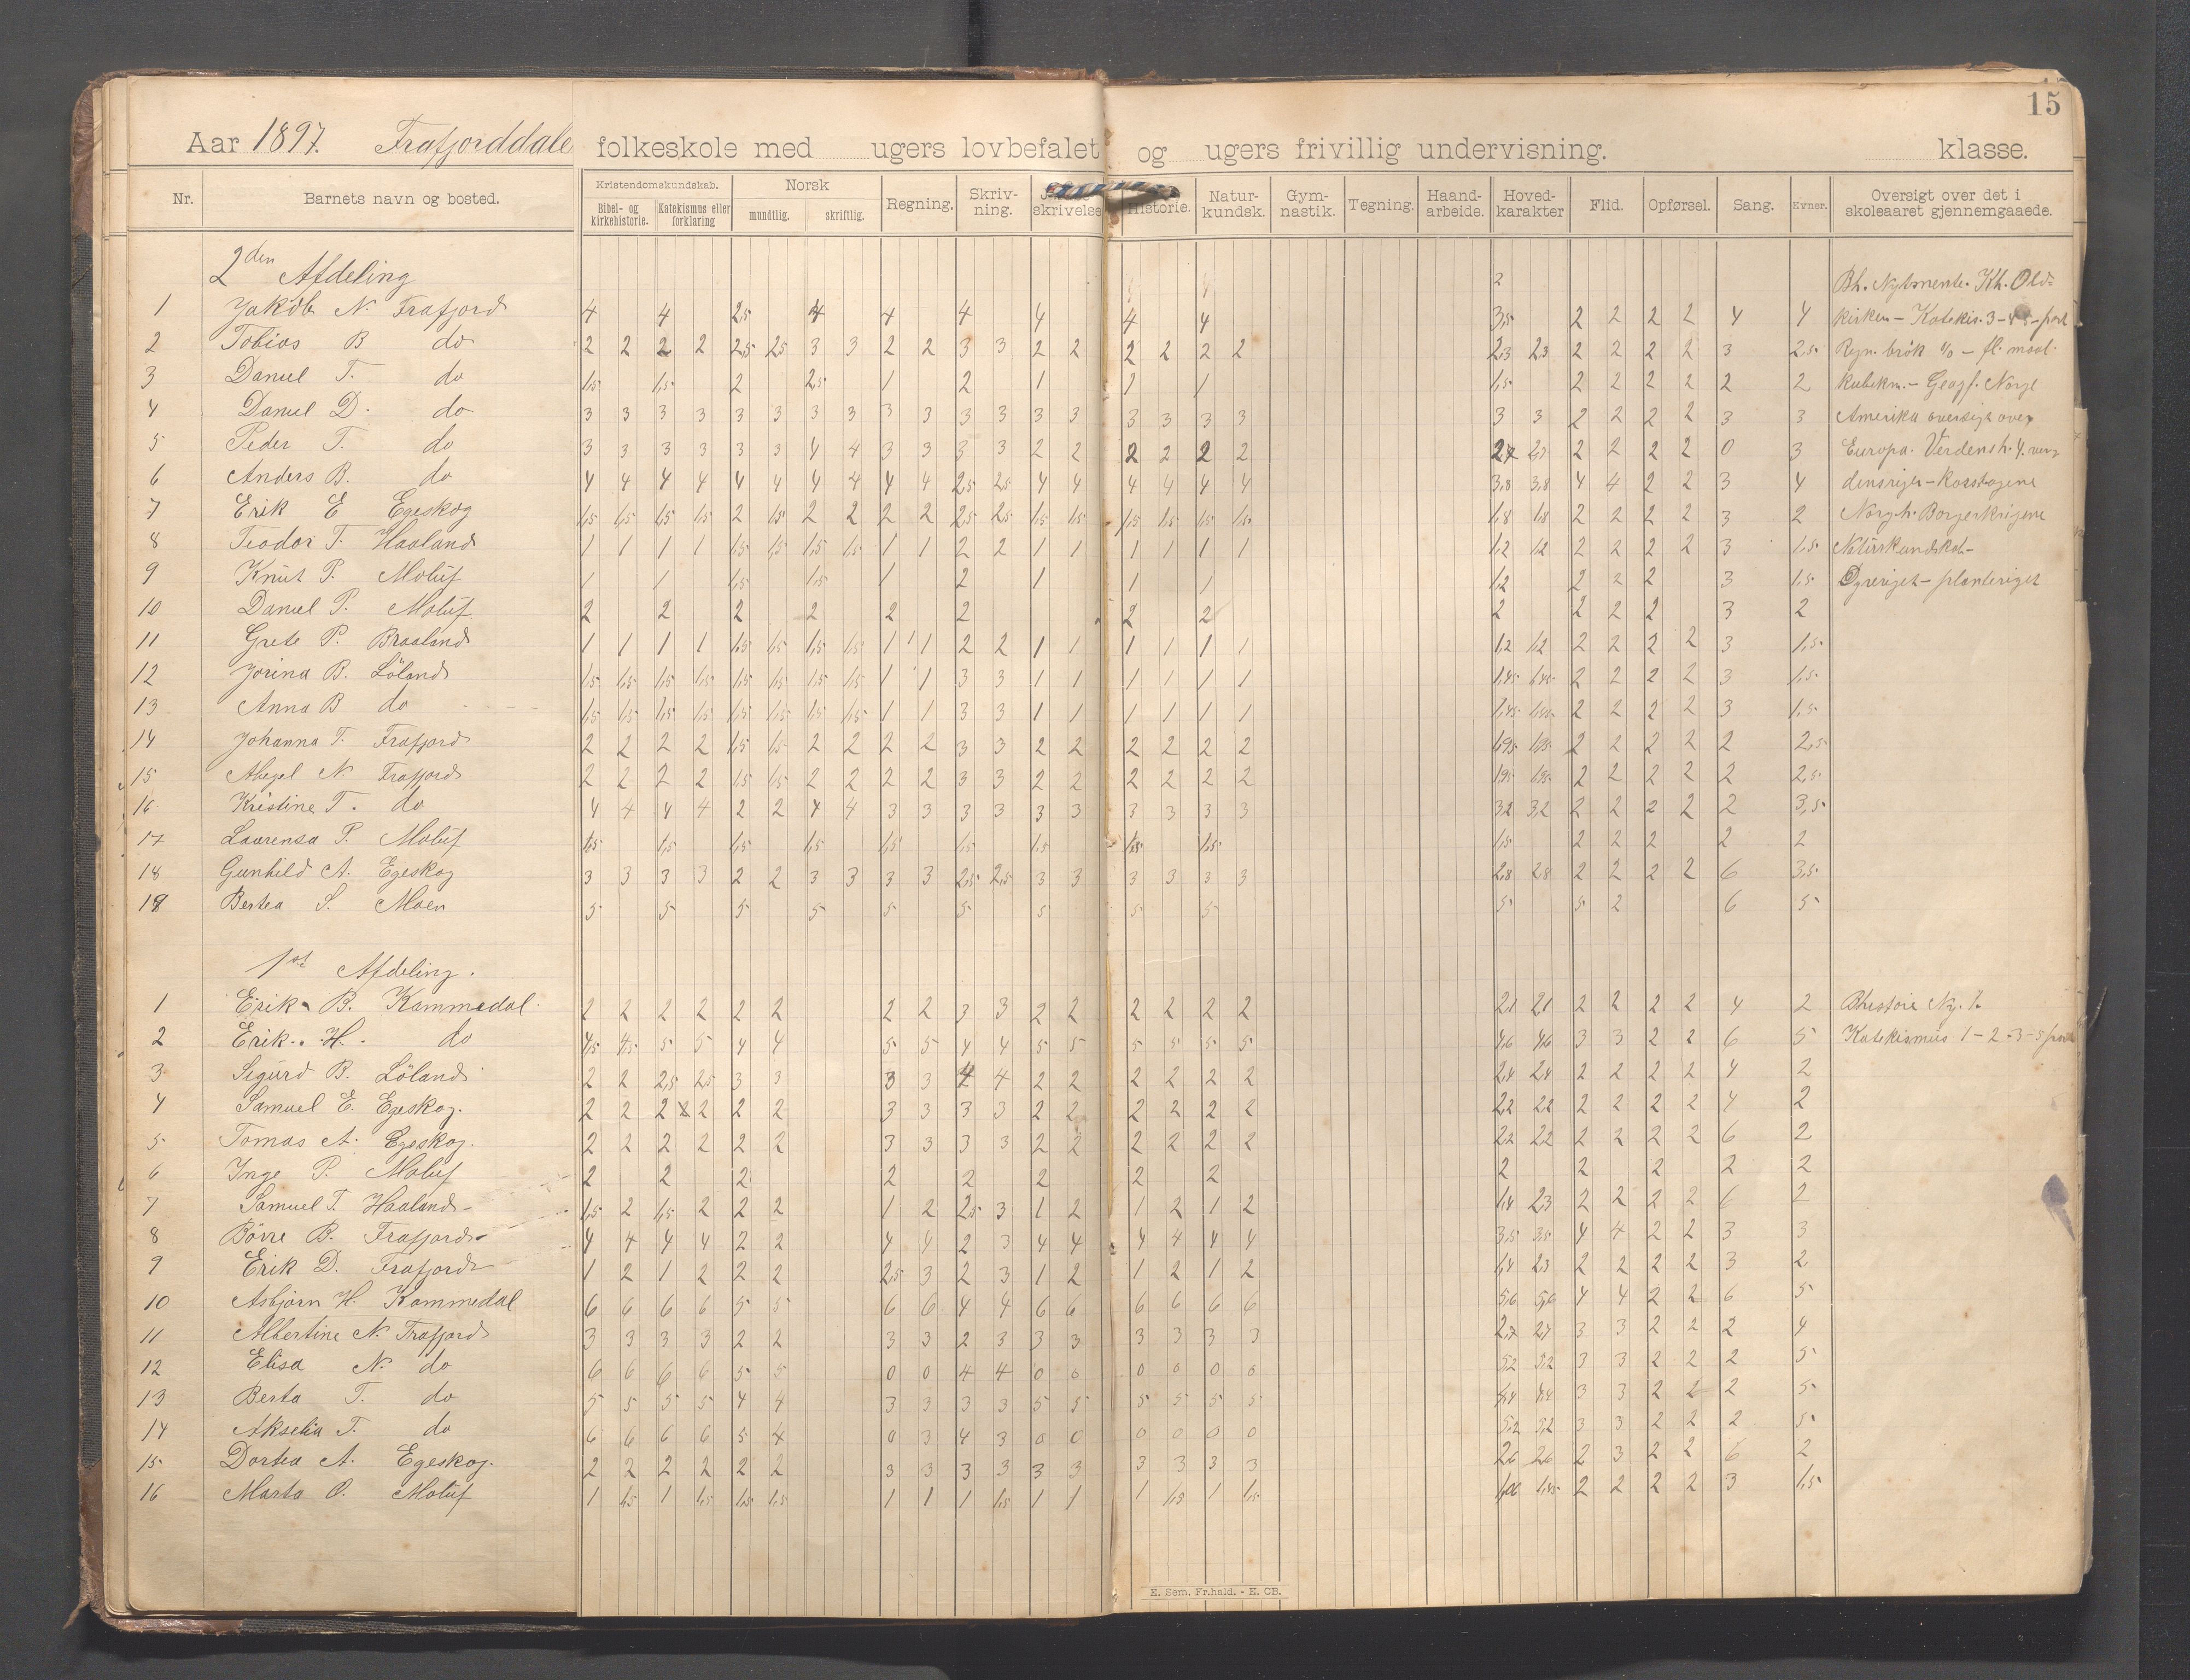 15
Aar 1897. Frafjorddale folkeskole med ugers lovbefalet og ugers frivillig undervisning. klasse.
Nr. Barnets navn og bosted. Kristendomskundskab. Bibel- og kirkehistorie. Katekismus eller forklaring Norsk mundtlig. skriftlig. Regning. Skriv-ning. skrivelse Historie. Natur-kundsk. Gym-nastik. Tegning. Haand-arbeide. Hoved-karakter Flid. Opførsel. Sang. Evner. Oversigt over det i skoleaaret gjennemgaaede.
2den Afdeling
1 Jakob N. Frafjord 4 4 2,5 4 4 4 4 4 4 3,5 2 2 2 2 4 4
2 Tobias B do 2 2 2 2 2,5 2,5 3 3 2 2 3 3 2 2 2 2 2 2 2,3 2,3 2 2 2 2 3 2,5
3 Daniel T. do 1,5 1,5 2 2,5 1 2 1 1 1 1,5 2 2 2 2 2 2 kubikm. - Geogf. Norge
4 Daniel D. do 3 3 3 3 3 3 3 3 3 3 3 3 3 3 3 3 3 3 3 3 2 2 2 2 3 3 Amerika oversigt over
5 Peder T. do 3 3 3 3 3 3 4 4 3 3 3 3 2 2 2 2 2 2 2 2 2 2 0 3 Europa. Verdensh. 4.
6 Anders B. do 4 4 4 4 4 4 4 4 4 4 2,5 2,5 4 4 4 4 4 4 3,8 3,8 4 4 2 2 3 4
7 Erik E Egeskog 1,5 1,5 1,5 1,5 2 1,5 2 2 2 2 2,5 2,5 1,5 1,5 1,5 1,5 1,5 1,5 1,8 1,8 2 2 2 2 3 2 Norgh. Borgerkrigene
8 Teodor T. Haaland 1 1 1 1 1,5 1,5 1,5 1,5 1 1 2 2 1 1 1 1 1 1 1,2 1,2 2 2 2 2 3 1,5
9 Knut P. Moluf 1 1 1,5 1,5 1 2 1 1 1 1,2 2 2 2 3 1,5 Dyreriget - planteriget
10 Daniel P. Moluf 2 2 2 2 2 2 2 2 2 2 2 2 3 2
11 Grete P. Braaland 1 1 1 1 1,5 1,5 1,5 1,5 1 1 2 2 1 1 1 1 1 1 1,2 1,2 2 2 2 2 3 1,5
12 Jorina B. Löland 1,5 1,5 1,5 1,5 1,5 1,5 1,5 1,5 1 1 3 3 1 1 1 1 1 1 1,45 1,45 2 2 2 2 3 1,5
13 Anna B do 1,5 1,5 1,5 1,5 1,5 1,5 1,5 1,5 1 1 3 3 1 1 1 1 1 1 1,45 2 2 2 2 3 1,5
14 Johanna T. Frafjord 2 2 2 2 1,5 1,5 2 2 2 2 3 3 2 2 2 2 2 2 1,95 1,95 2 2 2 2 2 2,5
15 Abegel N Frafjord 2 2 2 2 1,5 1,5 2 2 2 2 3 3 2 2 2 2 2 2 1,95 1,95 2 2 2 2 2 2,5
16 Kristine T. do 4 4 4 4 2 2 4 4 3 3 3 3 3 3 3 3 3 3 3,2 3,2 2 2 2 2 2 3,5
17 Laurensa P. Moluf 1,5 1,5 1,5 1,5 1,5 1,5 1,5 1,5 1,5 1,5 2 2 2 2 2
18 Gunhild A. Egeskog 3 3 3 3 2 2 3 3 3 3 2,5 2,5 3 3 3 3 3 3 2,8 2,8 2 2 2 2 6 3,5
19 Bertea S. Moen 5 5 5 5 5 5 5 5 5 5 5 2 6 5
1ste Afdeling.
1 Erik B. Kommedal 2 2 2 2 2 2 2 2 3 3 2 2 2 2 2 2 2,1 2,1 2 2 2 2 4 2
2 Erik H. do 4,5 4,5 5 5 4 4 5 5 4 4 5 5 5 5 5 5 4,6 4,6 3 3 2 2 6 5 Katekismus 1 - 2 - 3 - 5 part
3 Sigurd B. Löland 2 2 2,5 2,5 3 3 3 3 4 4 2 2 2 2 2 2 2,4 2,4 2 2 2 2 4 2
4 Samuel E. Egeskog. 2 2 2 2 2 2 3 3 3 3 2 2 2 2 2 2 2,2 2,2 2 2 2 2 4 2
5 Tomas A. Egeskog. 2 2 2 2 2 2 3 3 3 3 2 2 2 2 2 2 2,2 2,2 2 2 2 2 6 2
6 Inge P. Moluf 2 2 2 2 2 2 2 2 2 2 2 2 2
7 Samuel T. Haaland 1,5 2 1,5 2 2 2 1 2 2,5 3 1 2 1 2 1 2 1,4 2,3 2 2 2 2 6 2
8 Börre B. Frafjord 4 4 4 4 2 2 4 4 2 3 4 4 4 4 4 4 3,5 3,5 4 4 2 2 3 3
9 Erik D. Frafjord 1 2 1 2 2 2 2,5 3 2 3 1 2 1 2 1 2 1,4 2,3 2 2 2 2 3 2
10 Asbjørn H. Kommedal 6 6 6 6 5 5 6 6 4 4 6 6 6 6 6 6 5,6 5,6 4 4 2 2 6 5
11 Albertine N. Frafjord 3 3 3 3 2 2 3 3 2 3 3 3 3 3 3 3 2,7 2,7 3 3 2 2 2 4
12 Elisa N. do 6 6 6 6 5 5 0 0 4 4 0 0 0 0 0 0 5,2 5,2 3 3 2 2 2 5
13 Berta T. do 5 5 5 5 4 4 3 3 3 3 5 5 5 5 5 5 4,4 4,4 3 3 2 2 2 5
14 Akselia T. do 6 6 6 6 5 4 0 3 4 3 0 0 0 0 0 0 5,2 5,2 3 3 2 2 2 5
15 Dortea A. Egeskog. 2 2 2 2 2 2 3 3 3 3 3 3 3 3 3 3 2,6 2,6 2 3 2 2 6 2
16 Marta O. Moluf 1 1,5 1 1,5 1,5 1,5 1 1 1 1,5 1 1 1 1,5 1 1,5 1,45 2 2 2 2 3 1,5
E. Sem, Fr.hald. - E. CB.